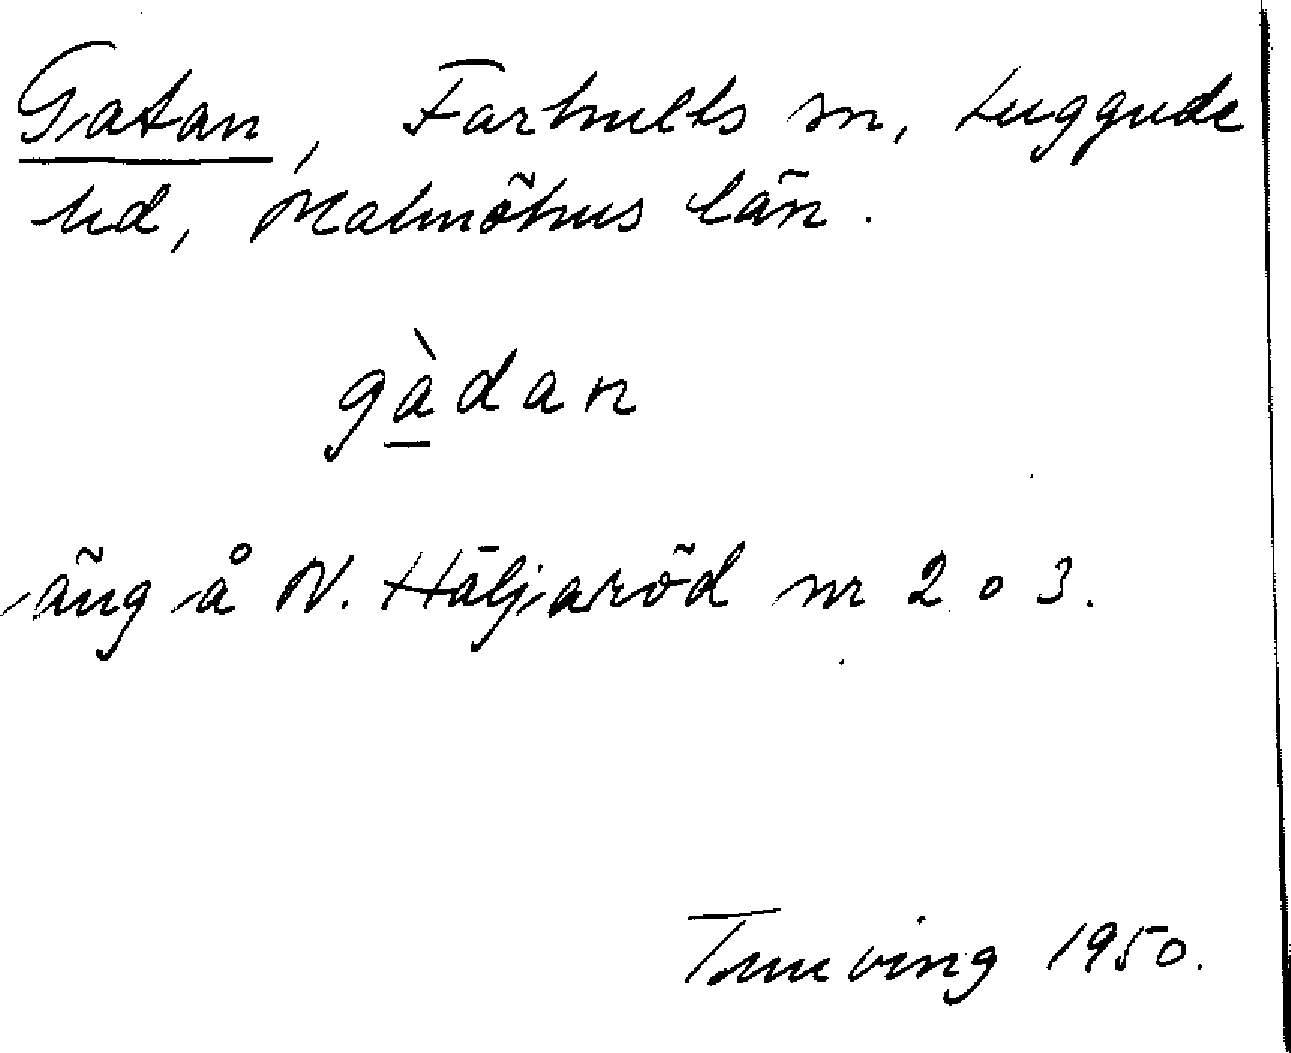 Gatan, Farhults sn, Luggude
hd, Malmöhus län.
gàdan
äng å N. Häljaröd nr 2 o 3.
Tuneving 1950.